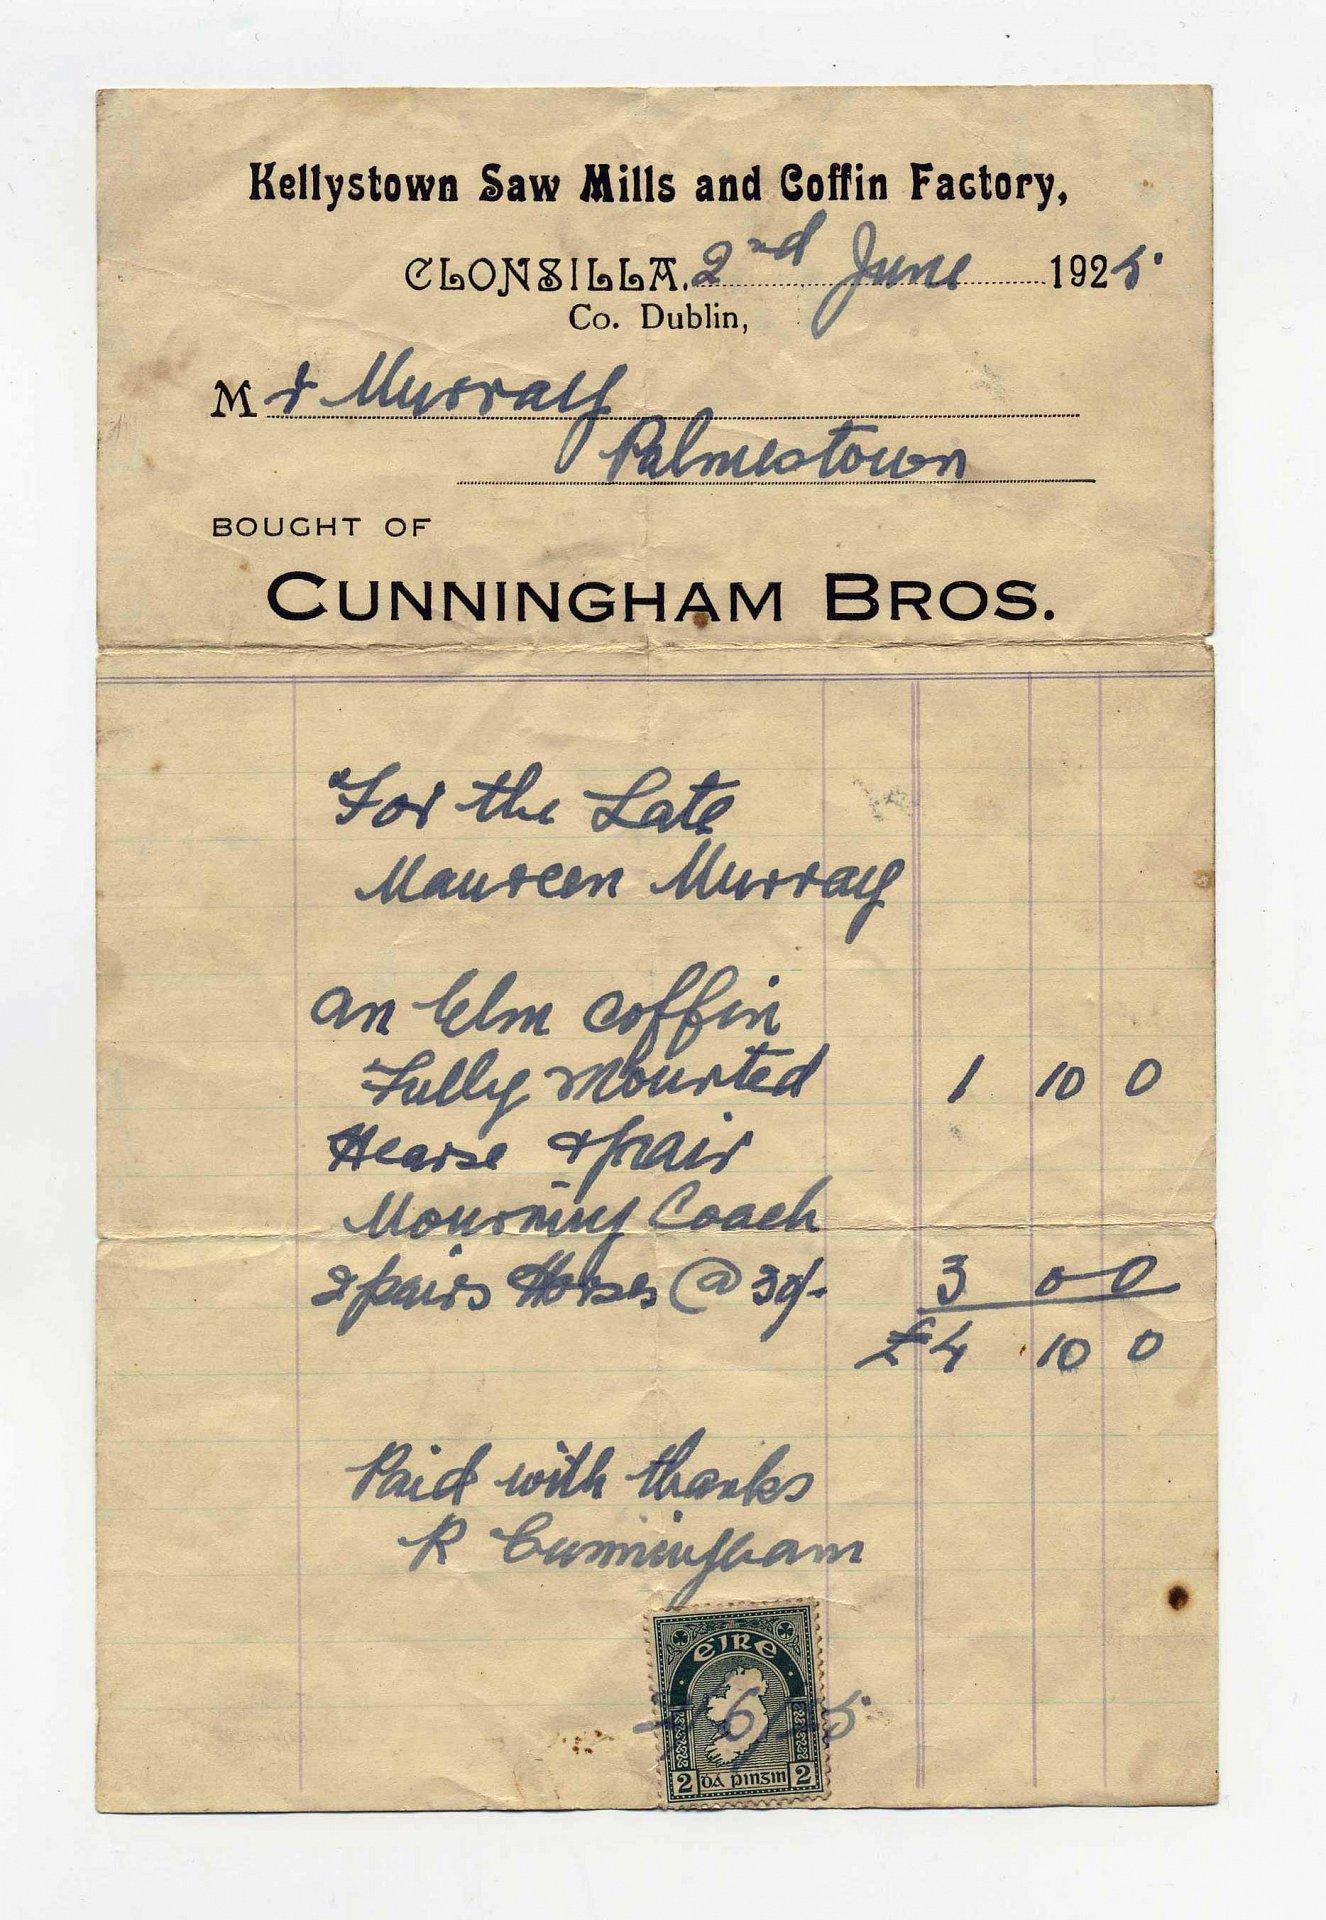 Kellystown Saw Mills and Coffin Factory,
CLONSILLA. 2nd June 1925.
Co. Dublin,
Mr Murray
Palmestown
BOUGHT OF
CUNNINGHAM BROS.
For the Late
Maureen Murray
an Elm Coffin
Fully Mounted 1 10 0
Hearse & pair
Mourning Coach
& pairs Horses @ 30/- 3 0 0
£4 10 0
Paid with thanks
R Cunningham
EIRE
2 DÁ PINGIN 2